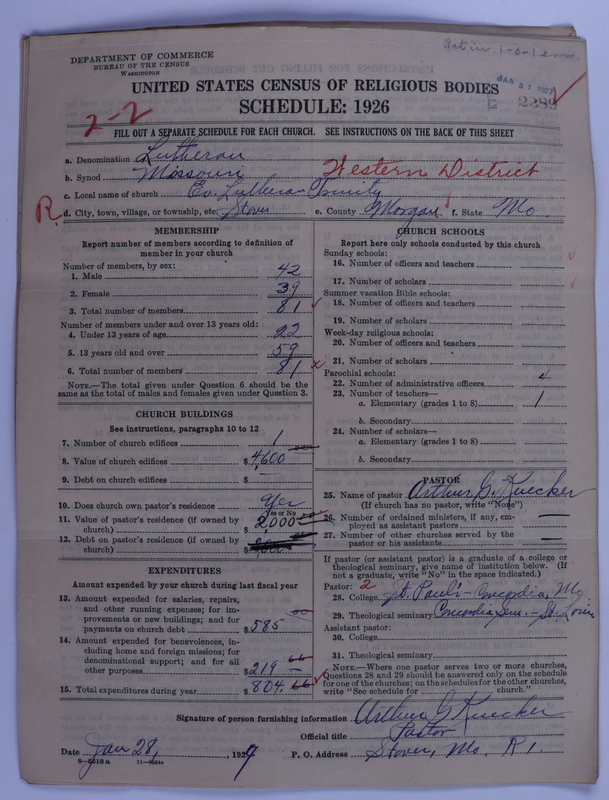 DEPARTMENT OF COMMERCE
BUREAU OF THE CENSUS
WASHINGTON
JAN 31 1927
2289
UNITED STATES CENSUS OF RELIGIOUS BODIES
SCHEDULE: 1926
2-2
FILL OUT A SEPARATE SCHEDULE FOR EACH CHURCH. SEE INSTRUCTIONS ON THE BACK OF THIS SHEET
a. Denomination Lutheran
b. Synod Missouri Western District
c. Local name of church Ev. Lutheran Trinity
R. d. City, town, village, or township, etc. Stover e. County Morgan f. State Mo
MEMBERSHIP
Report number of members according to definition of
member in your church
Number of members, by sex:
1. Male 42
2. Female 39
3. Total number of members 81
Number of members under and over 13 years old:
4. Under 13 years of age 22
5. 13 years old and over 59
6. Total number of members 81 x
NOTE.—The total given under Question 6 should be the
same as the total of males and females given under Question 3.
CHURCH BUILDINGS
See instructions, paragraphs 10 to 12
7. Number of church edifices 1
8. Value of church edifices $4,600
9. Debt on church edifices $ —
10. Does church own pastor's residence Yes
Yes or No
11. Value of pastor's residence (if owned by
church) $2,000
12. Debt on pastor's residence (if owned by
church) $
EXPENDITURES
Amount expended by your church during last fiscal year
13. Amount expended for salaries, repairs,
and other running expenses; for im-
provements or new buildings; and for
payments on church debt $585
14. Amount expended for benevolences, in-
cluding home and foreign missions; for
denominational support; and for all
other purposes $219
15. Total expenditures during year $804.
CHURCH SCHOOLS
Report here only schools conducted by this church
Sunday schools:
16. Number of officers and teachers
17. Number of scholars
Summer vacation Bible schools:
18. Number of officers and teachers
19. Number of scholars
Week-day religious schools:
20. Number of officers and teachers
21. Number of scholars
Parochial schools:
22. Number of administrative officers 4
23. Number of teachers—
a. Elementary (grades 1 to 8) 1
b. Secondary
24. Number of scholars—
a. Elementary (grades 1 to 8)
b. Secondary
PASTOR
25. Name of pastor Arthur G. Kuecker
(If church has no pastor, write "None")
26. Number of ordained ministers, if any, em-
ployed as assistant pastors —
27. Number of other churches served by the
pastor or his assistants —
If pastor (or assistant pastor) is a graduate of a college or
theological seminary, give name of institution below. (If
not a graduate, write "No" in the space indicated.)
Pastor: 2
28. College St. Paul's - Concordia, Mo.
29. Theological seminary Concordia Sem. - St. Louis
Assistant pastor:
30. College
31. Theological seminary
NOTE.—Where one pastor serves two or more churches,
Questions 28 and 29 should be answered only on the schedule
for one of the churches; on the schedules for the other churches,
write "See schedule for ______ church."
Signature of person furnishing information Arthur G Kuecker
Official title Pastor
Date Jan 28, 1927 P. O. Address Stover, Mo. R 1.
8—5518 a